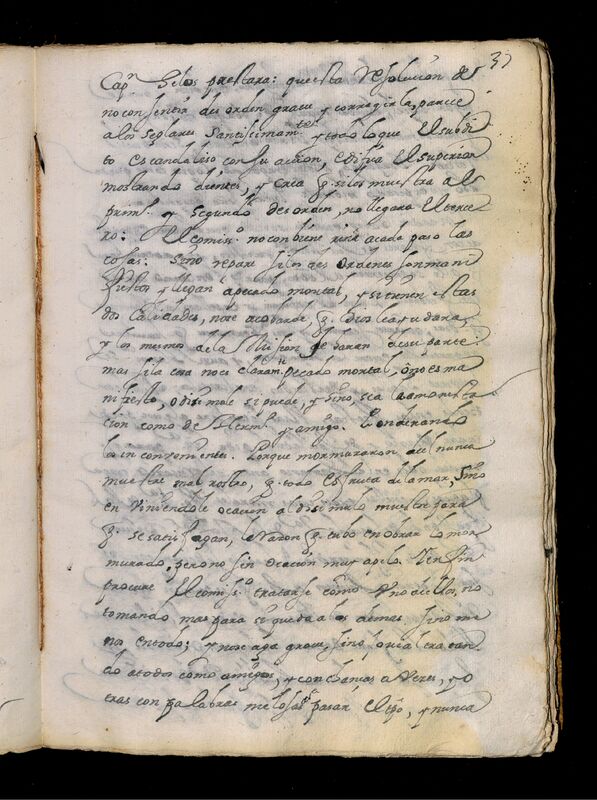 37
Capn. Se los prestara: que esta resolucion de
no consentir des orden graue y corregirla, parece
a los seglares santissimamte. y todo lo que el subdi
to escandaliso con su accion, edifica el superior
mostrando dientes, y crea q. si los muestra al
primo. y segundo desorden, no llegara el terce
ro: El comiso. no conbiene reñir a cada paso las
cosas. Sino repare si los des ordenes son mani
fiestos y llegan a pecado mortal, y si tienen estas
dos calidades, no se acobarde, q. Dios le ayudara,
y los mesmos de la Mision se daran de su parte.
mas si la cosa no es claramte. pecado mortal, o no es ma
nifiesto, o disimule si puede, y sino, sea la amonesta
cion como de Hermo. y amigo. Ponderando
los in conuenientes. Porque mormuraron del nunca
muestre mal rostro, q. todo es fruta de la mar, Sino
en viniendole ocasion al disimulo muestre para
q. se satisfagan, la raçon q. tubo en obrar lo mor
murado, pero no sin ocasion muy a pelo. Y en fin
procure el comiso. tratarse como vno de ellos, no
tomando mas para si que da a los demas sino me
nos en todo; y no se aga graue, sino jouial tratan
do a todos como amigos, y con chanças a veces, y o
tras con palabras melosas pasar el tpo, y nunca